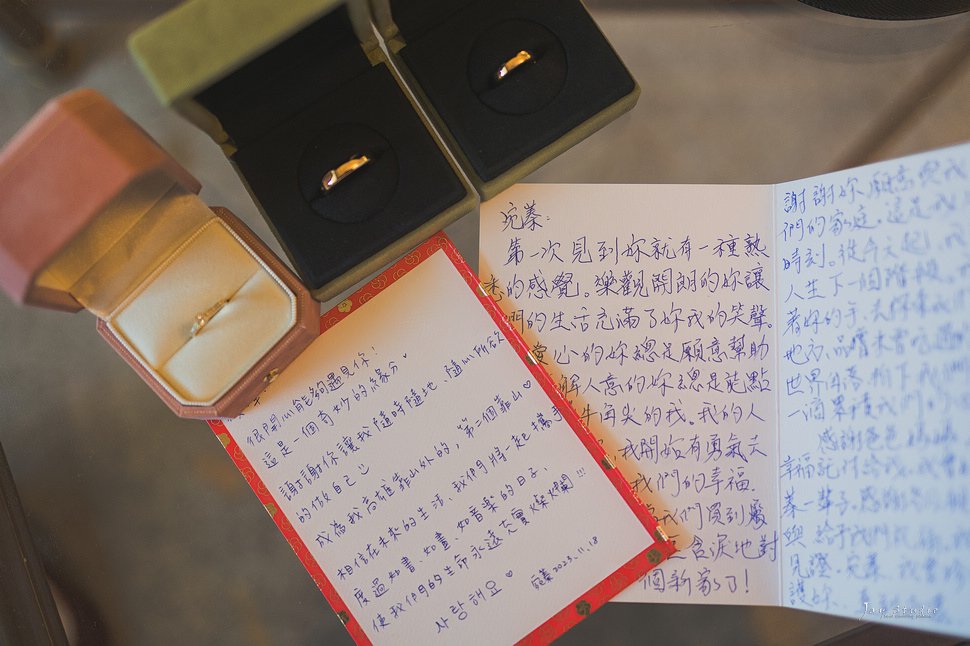 很開心能夠遇見你!
這是一個奇妙的緣分♡
謝謝你讓我隨時隨地、隨心所欲
的做自己
成為我高雄靠山外的,第二個靠山♡
相信在未來的生活,我們將一起攜手
度過如書、如畫、如音樂的日子,
使我們的生命永遠充實、燦爛!!!
사랑해요♡
宛蓁 2023.11.18
宛蓁:
第一次見到妳就有一種熟
悉的感覺。樂觀開朗的妳讓
們的生活充滿了妳我的笑聲。
愛心的妳總是願意幫助
解人意的妳總是能點
牛角尖的我。我的人
我開始有勇氣去
我們的幸福.
我們買到屬
含淚地對
個新家了!
謝謝妳願意與我
們的家庭.這是我
時刻。從今天起,我
人生下一個階段。
著妳的手,去
地方,品嚐未曾吃過
世界角落,拍下我們
一滴累積我們的
感謝爸爸媽媽
幸福託付給我,我會
蓁一輩子。感謝
與給予我們祝福,
見證.宛蓁,我會
護妳,
Jay Studio